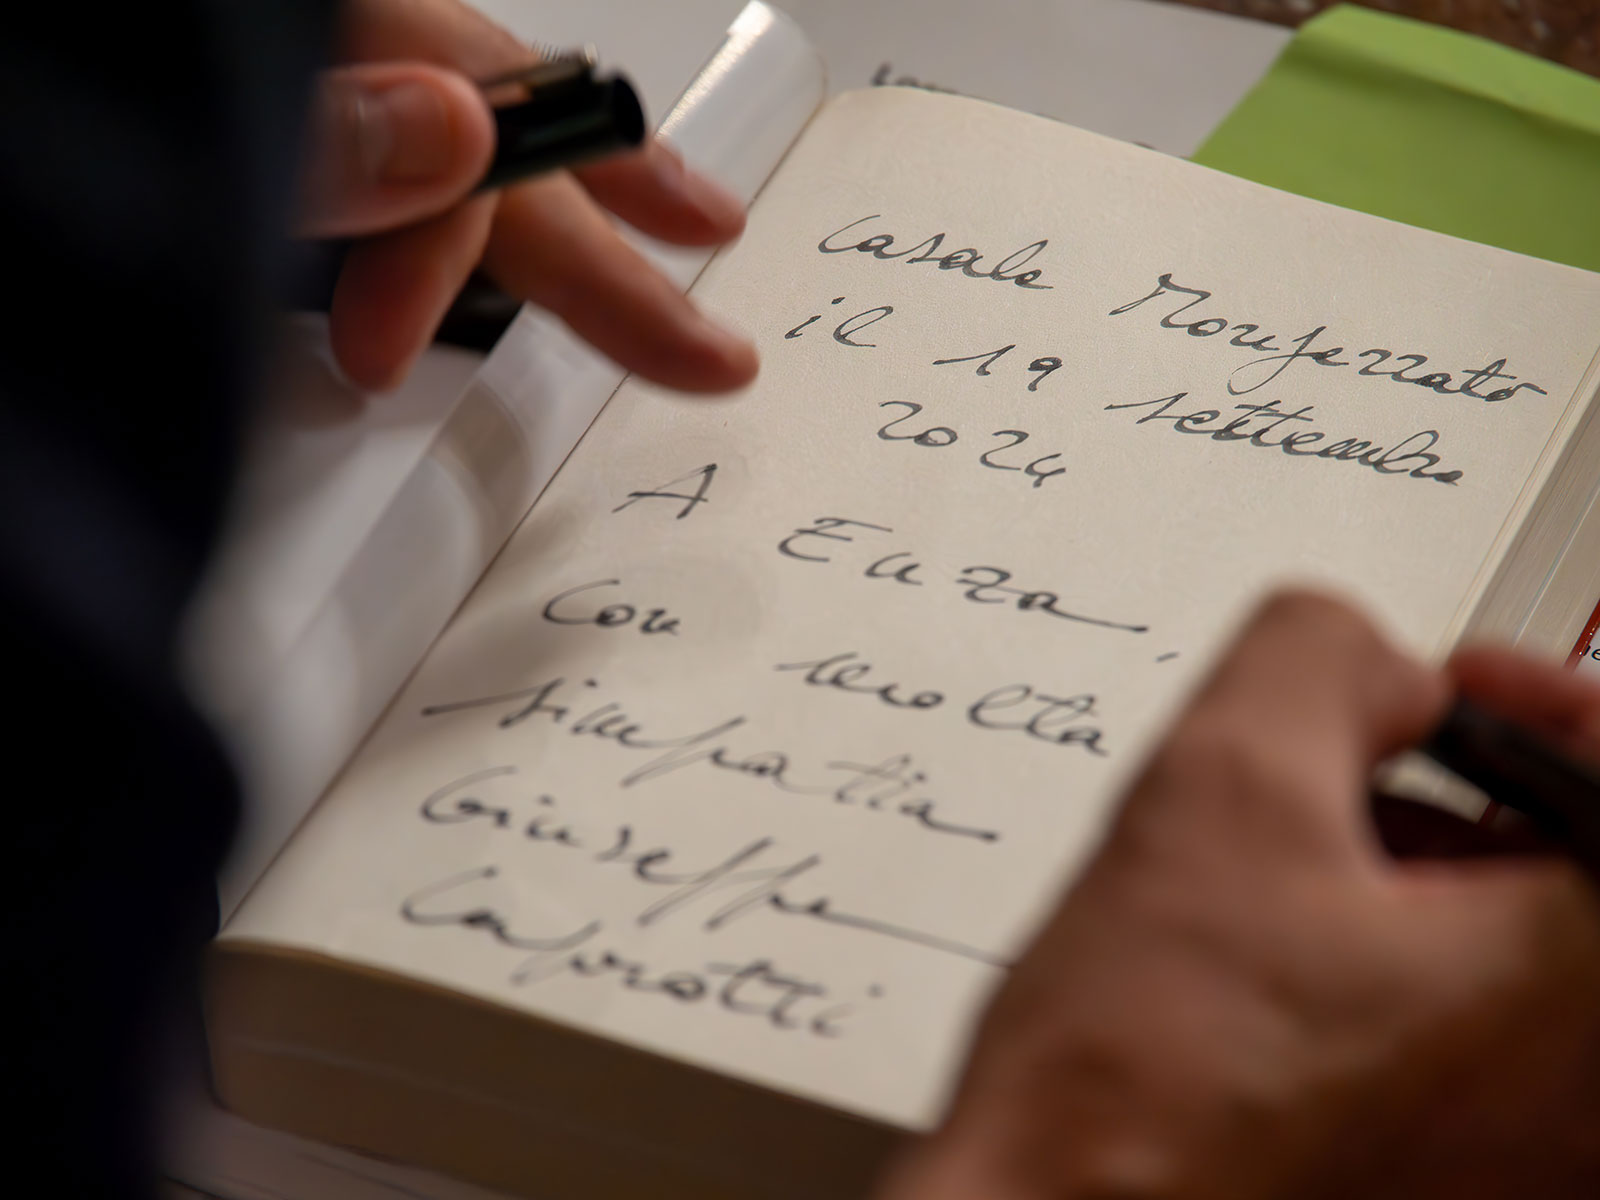 Casale Monferrato
il 19 settembre
2024
A Enza,
Con molta
simpatia
Giuseppe
Caprotti